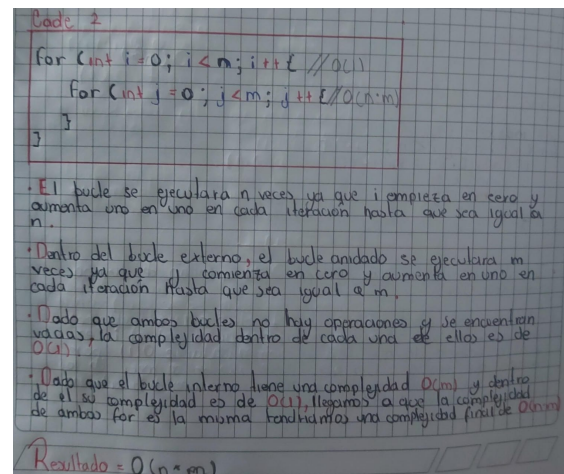 Code 2
for (int i=0; i<m; i++{ //O(1)
for (int j=0; j<m; j++{//O(n·m)
}
}
· El bucle se ejecutara n veces ya que i empieza en cero y
aumenta uno en uno en cada iteración hasta que sea igual a
n.
· Dentro del bucle externo, el bucle anidado se ejecutara m
veces ya que j comienza en cero y aumenta en uno en
cada iteración hasta que sea igual a m.
· Dado que ambos bucles no hay operaciones y se encuentran
vacias, la complejidad dentro de cada una de ellas es de
O(1).
· Dado que el bucle interno tiene una complejidad O(m) y dentro
de el su complejidad es de O(1), llegamos a que la complejidad
de ambos for es la misma tendriamos una complejidad final de O(n·m)
Resultado = O(n*m)